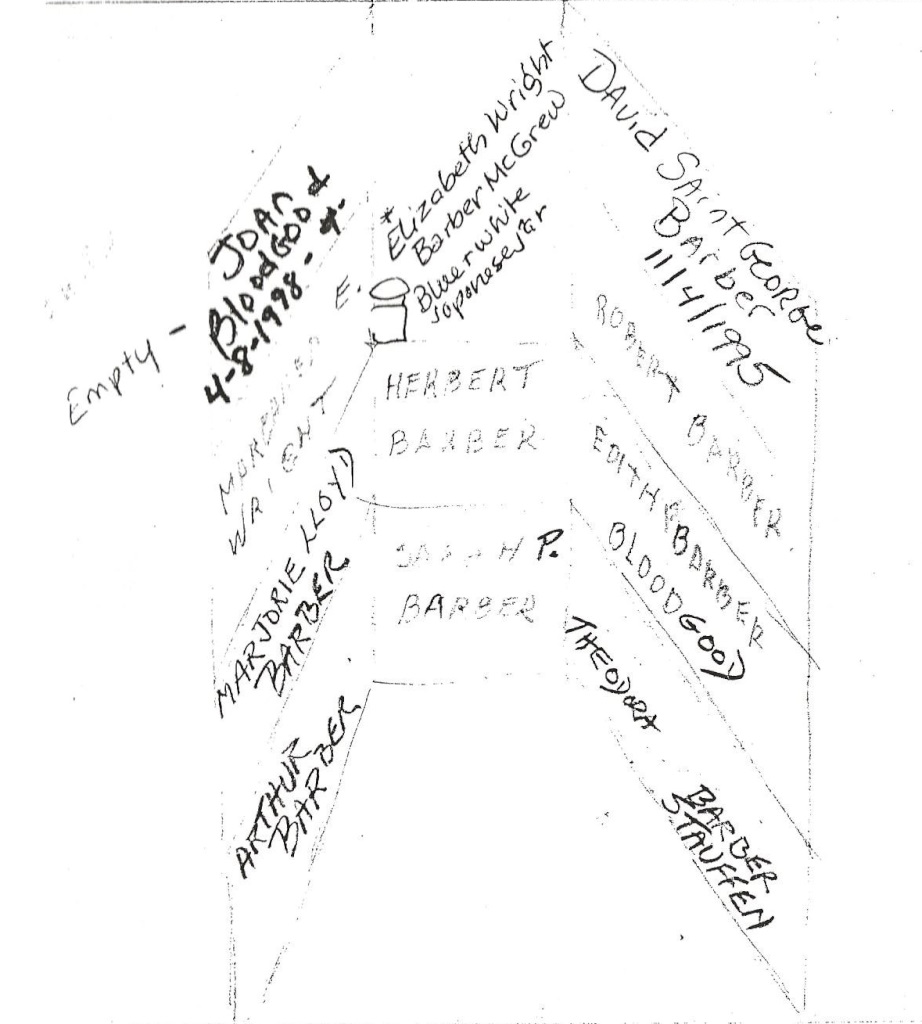 Empty -
JOAN
BloodGOOd
4-8-1998 -
E.
WRIGHT
MARJORIE LLOYD
BARBER
ARTHUR
BARBER
* Elizabeth Wright
Barber McGrew
Blue + white
Japanese jar
HERBERT
BARBER
P.
BARBER
DAVid SAint GEORGE
Barber
11/4/1995
ROBERT BARBER
EDITH BARBER
BLOODGOOD
THEODORA
BARBER
STAUFFEN